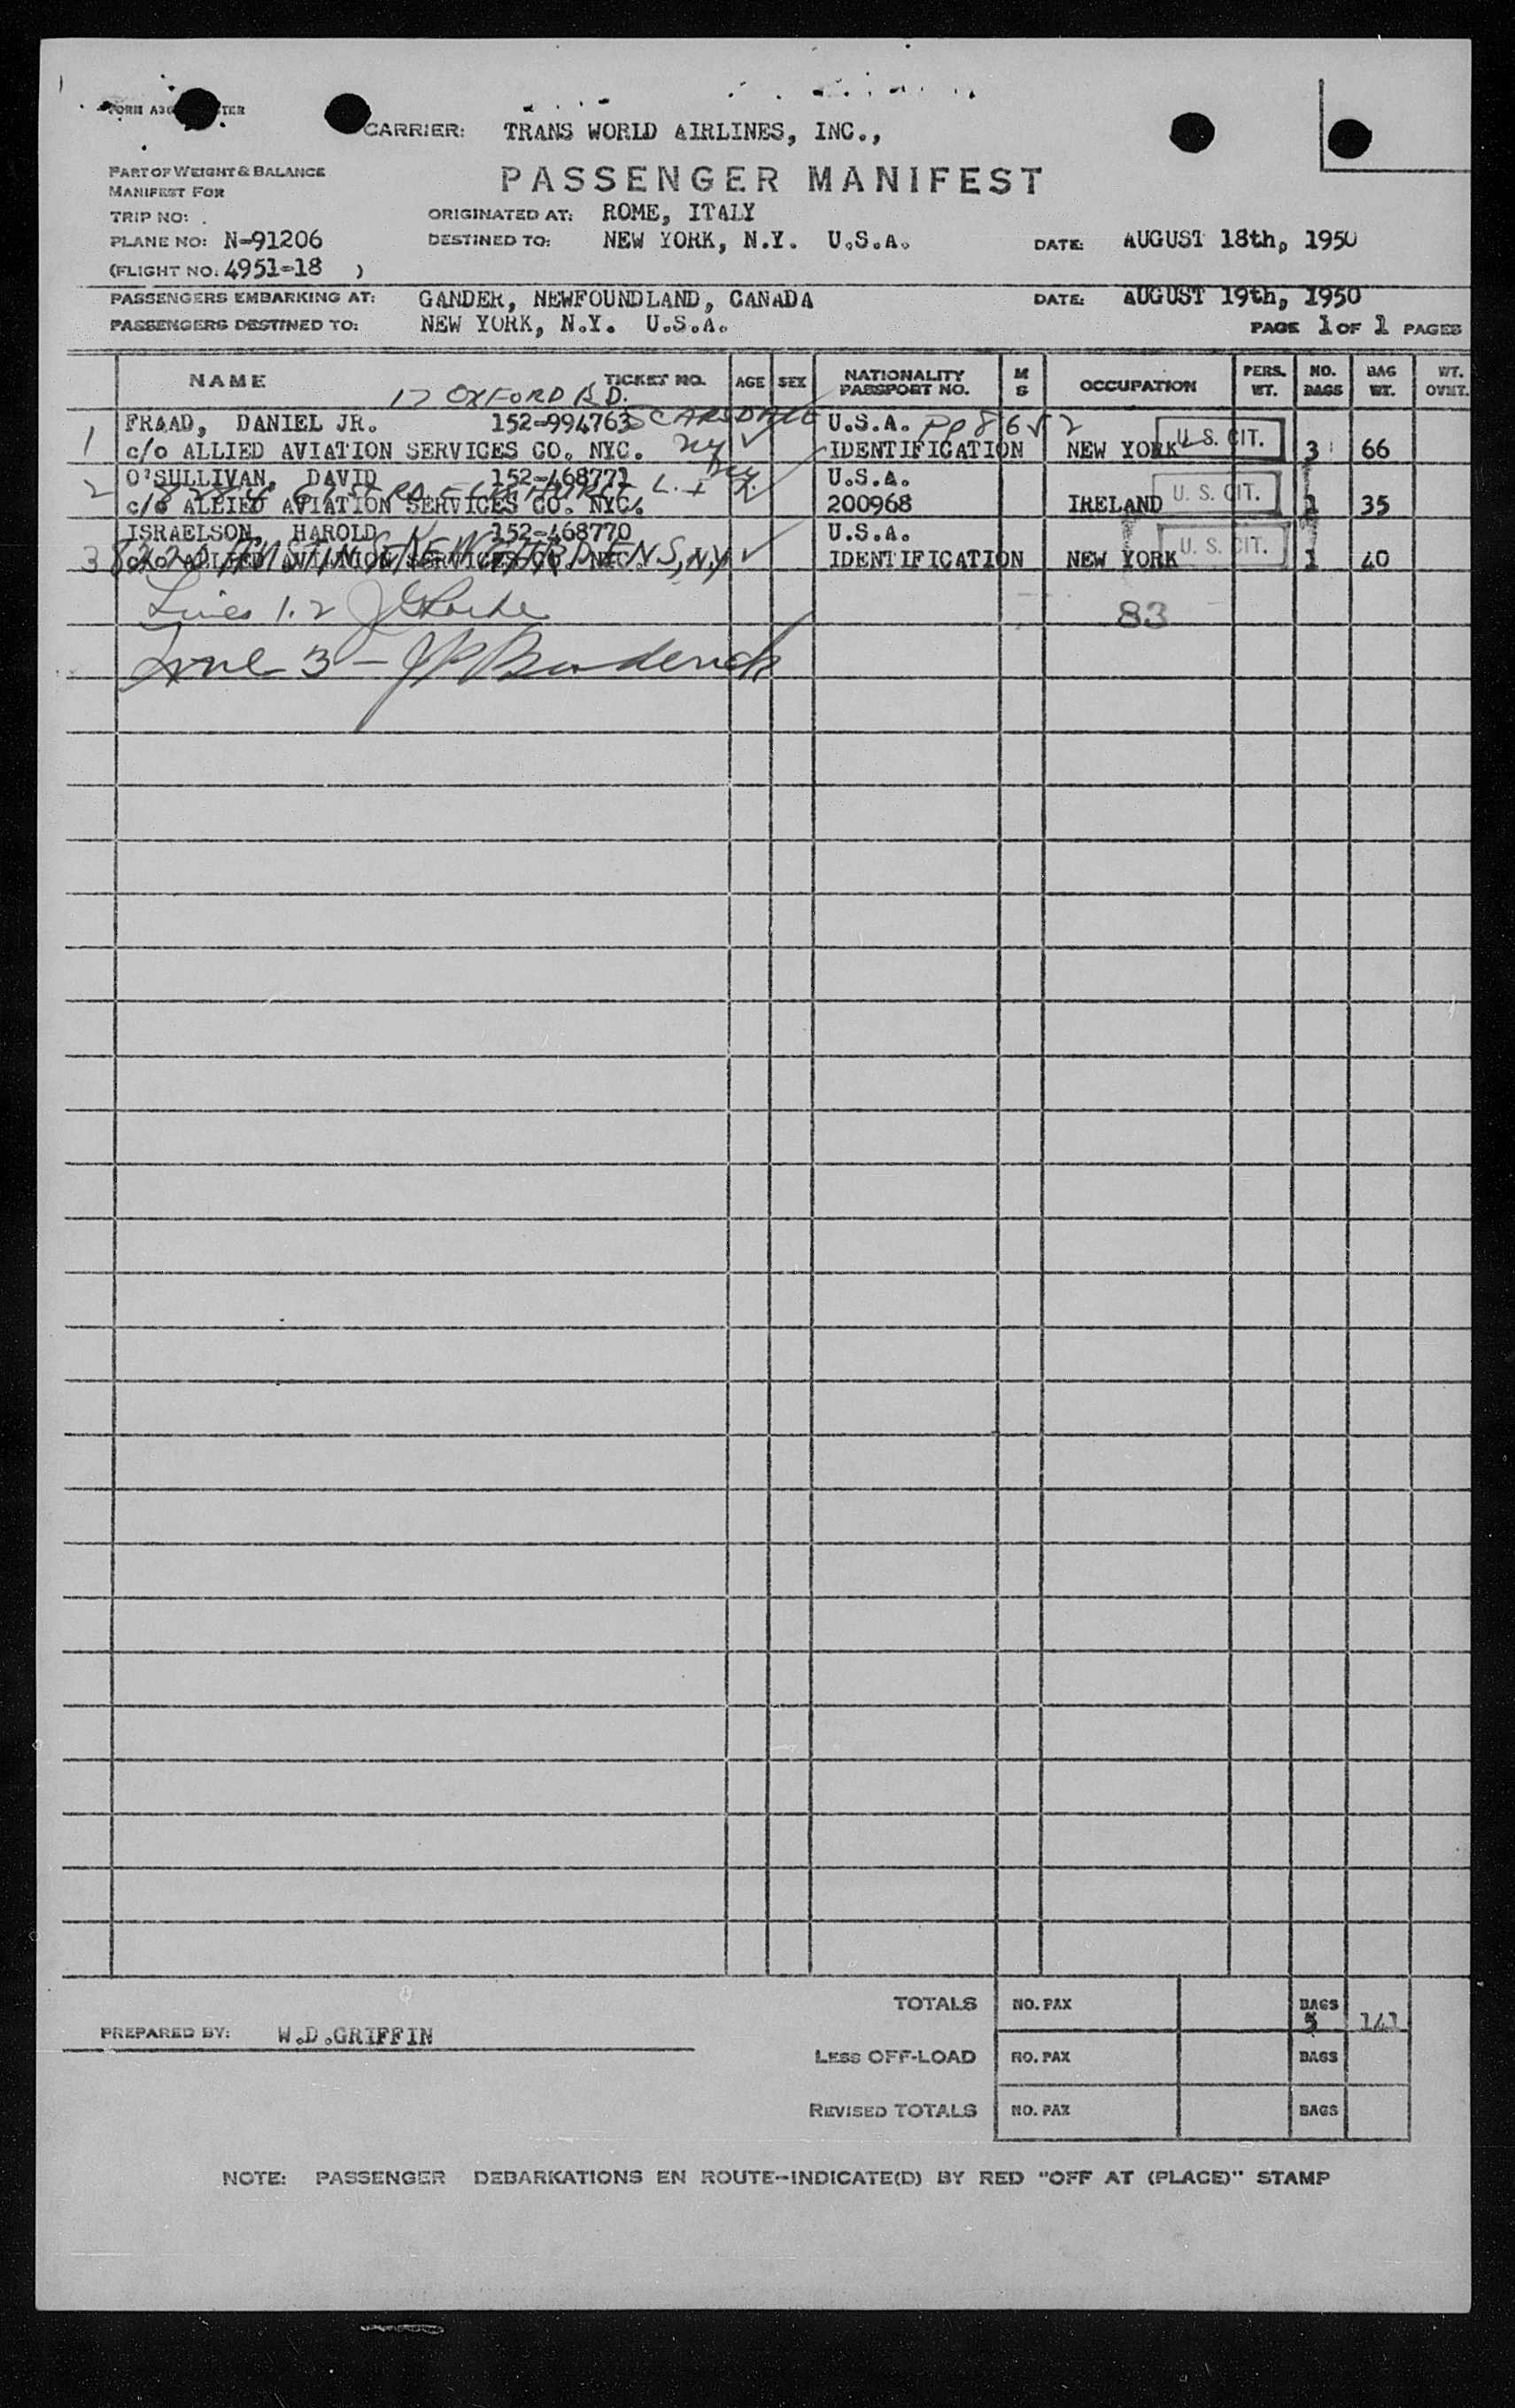 CARRIER: TRANS WORLD AIRLINES, INC.,
PART OF WEIGHT & BALANCE
MANIFEST FOR
PASSENGER MANIFEST
TRIP NO:
ORIGINATED AT: ROME, ITALY
PLANE NO: N-91206
DESTINED TO: NEW YORK, N.Y. U.S.A.
DATE: AUGUST 18th, 1950
(FLIGHT NO: 4951-18 )
PASSENGERS EMBARKING AT: GANDER, NEWFOUNDLAND, CANADA
DATE: AUGUST 19th, 1950
PASSENGERS DESTINED TO: NEW YORK, N.Y. U.S.A.
PAGE 1 OF 1 PAGES
NAME TICKET NO. AGE SEX NATIONALITY PASSPORT NO. M S OCCUPATION PERS. WT. NO. BAGS BAG WT. WT. OVHT.
17 OXFORD RD.
SCARSDALE
NY
1 FRAAD, DANIEL JR. 152-994763 U.S.A.
c/o ALLIED AVIATION SERVICES CO. NYC. IDENTIFICATION NEW YORK U. S. CIT. 3 66
2 O'SULLIVAN, DAVID 152-468771 U.S.A.
c/o ALLIED AVIATION SERVICES CO. NYC. 200968 IRELAND U. S. CIT. 1 35
3 ISRAELSON, HAROLD 152-468770 U.S.A.
c/o ALLIED AVIATION SERVICES CO. NYC. IDENTIFICATION NEW YORK U. S. CIT. 1 40
KEW GARDENS, N.Y
Lines 1.2
83
Line 3 - J P Broderick
TOTALS NO. PAX BAGS 5 141
PREPARED BY: W.D.GRIFFIN
LESS OFF-LOAD NO. PAX BAGS
REVISED TOTALS NO. PAX BAGS
NOTE: PASSENGER DEBARKATIONS EN ROUTE-INDICATE(D) BY RED "OFF AT (PLACE)" STAMP